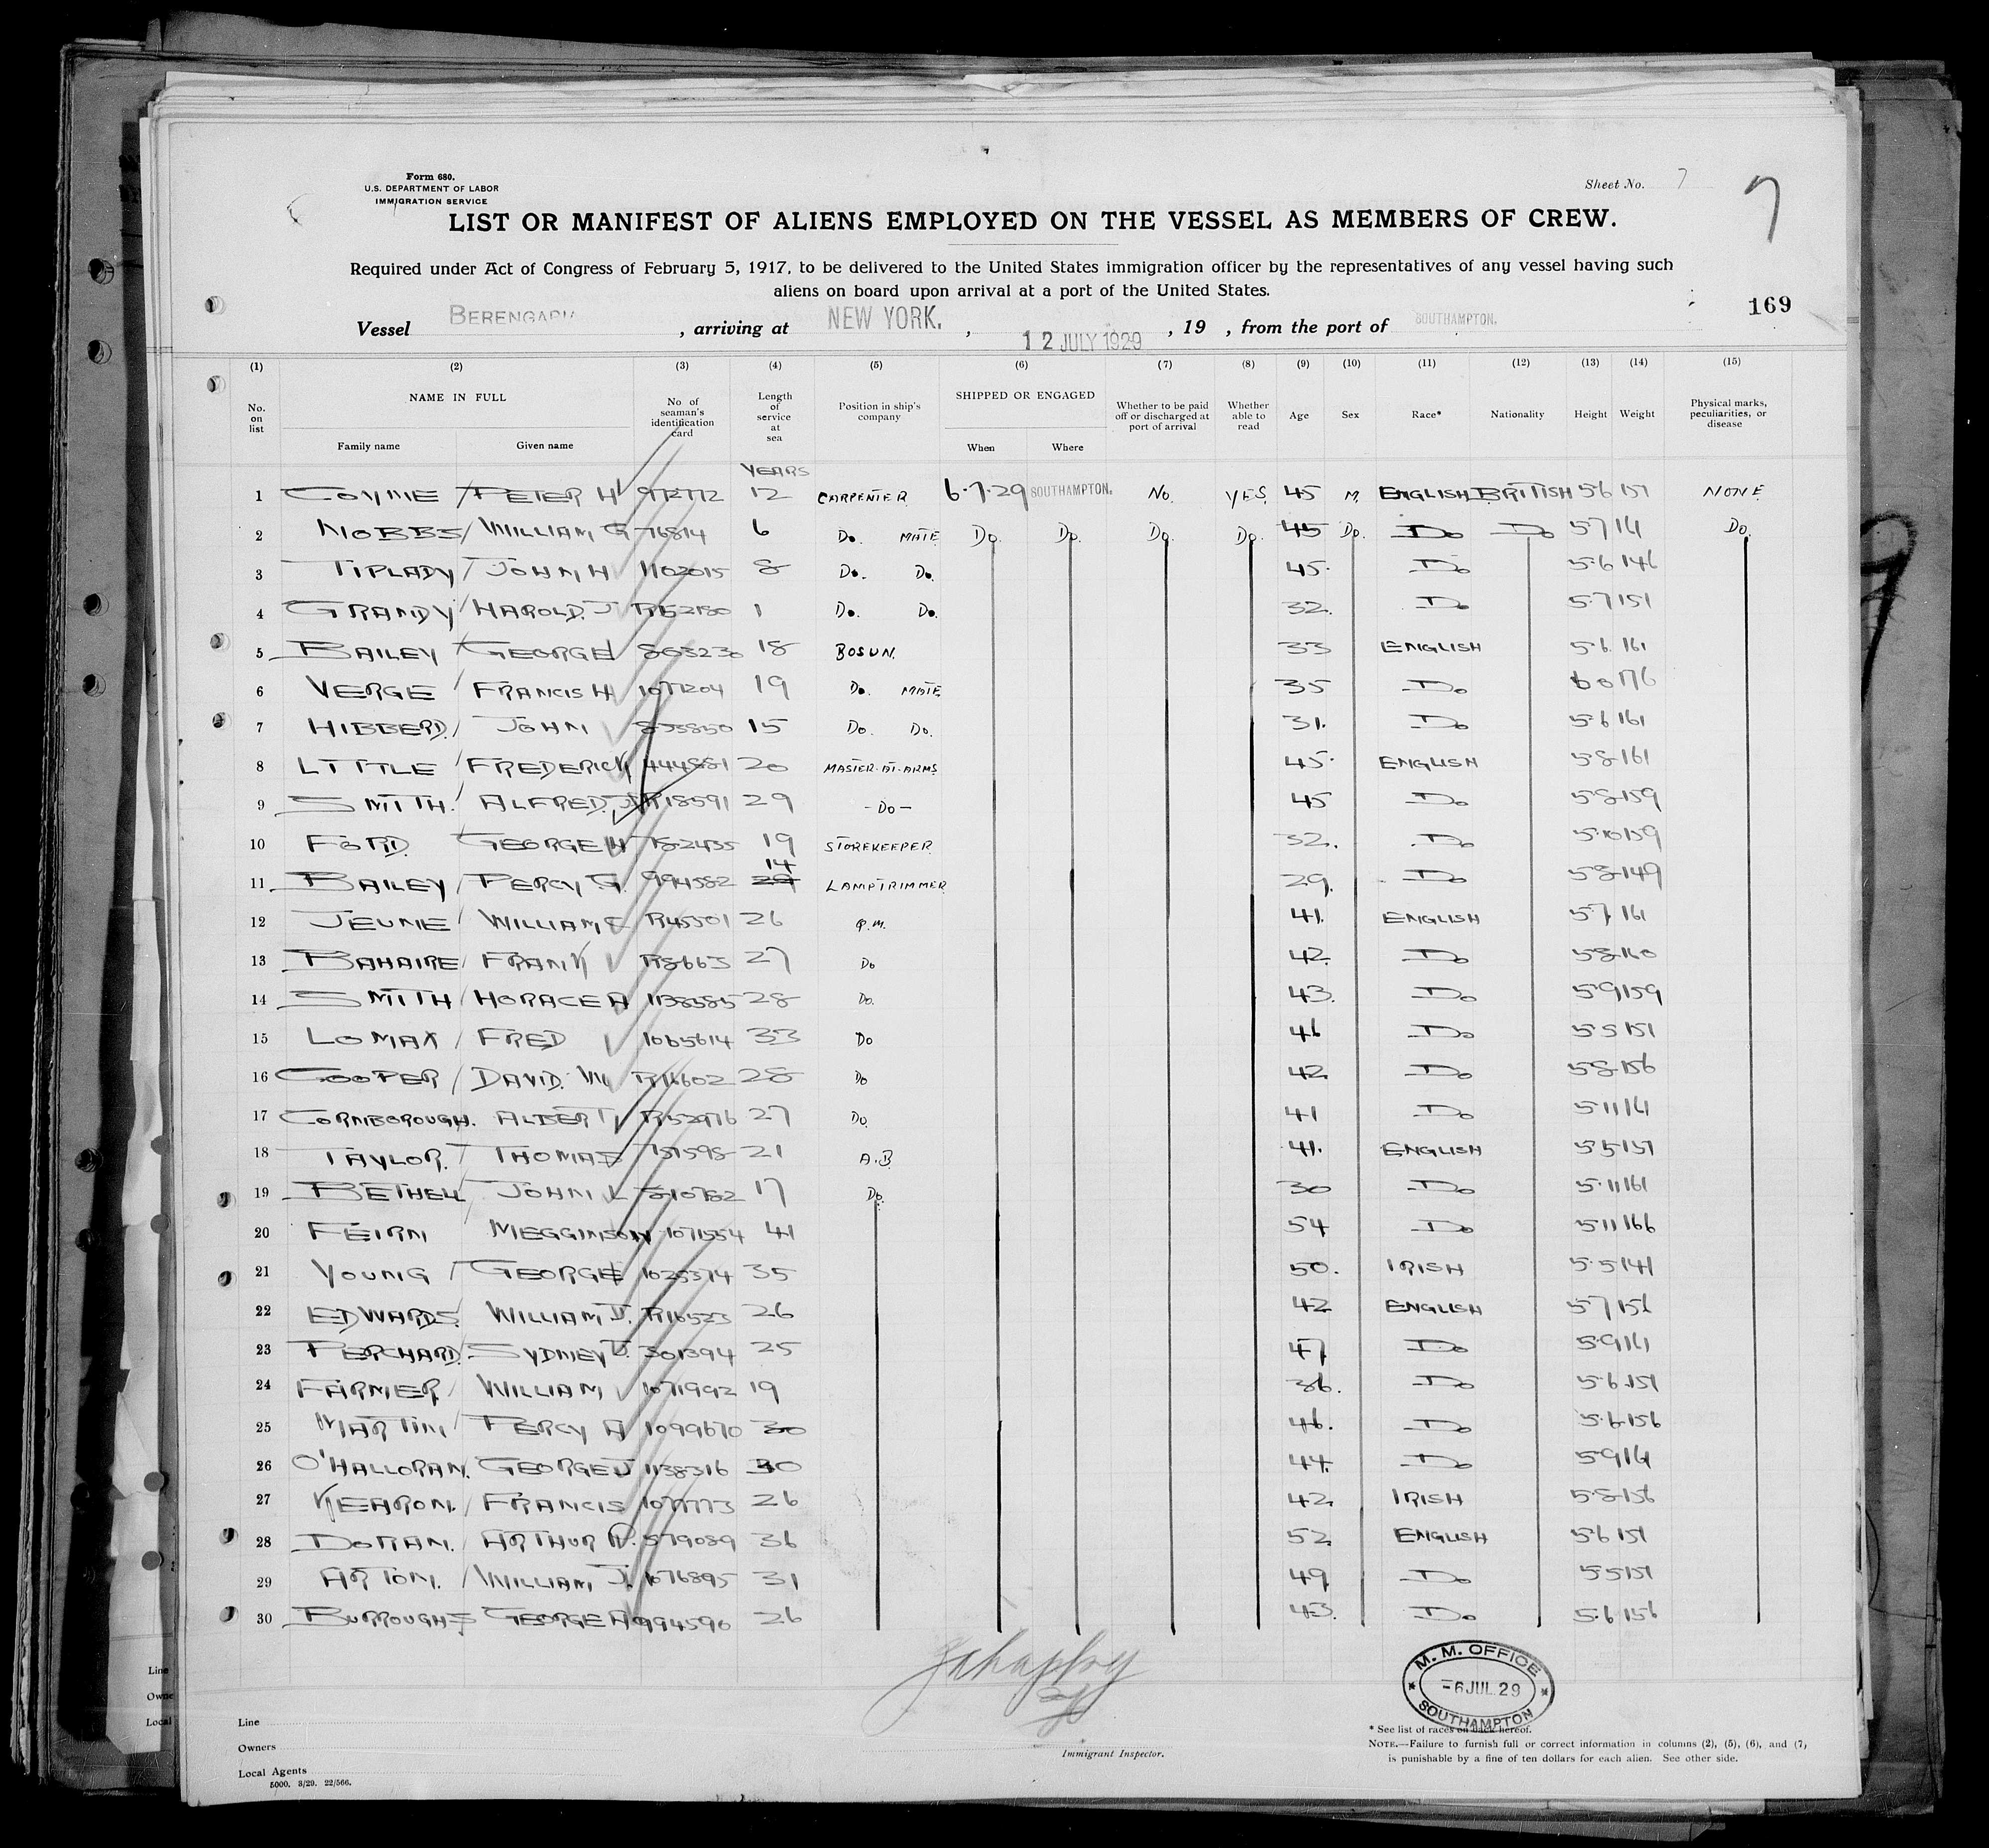 Form 680.
U.S. DEPARTMENT OF LABOR
IMMIGRATION SERVICE
Sheet No. 7
7
LIST OR MANIFEST OF ALIENS EMPLOYED ON THE VESSEL AS MEMBERS OF CREW.
Required under Act of Congress of February 5, 1917, to be delivered to the United States immigration officer by the representatives of any vessel having such
aliens on board upon arrival at a port of the United States.
169
Vessel BERENGARIA, arriving at NEW YORK., 12 JULY 1929, 19 , from the port of SOUTHAMPTON.
(1) (2) (3) (4) (5) (6) (7) (8) (9) (10) (11) (12) (13) (14) (15)
No. on list NAME IN FULL Family name Given name No. of seaman's identification card Length of service at sea Position in ship's company SHIPPED OR ENGAGED When Where Whether to be paid off or discharged at port of arrival Whether able to read Age Sex Race* Nationality Height Weight Physical marks, peculiarities, or disease
YEARS
1 COYNE PETER H 972772 12 CARPENTER 6.7.29 SOUTHAMPTON. No. YES. 45 M. ENGLISH BRITISH 5.6 151 NONE
2 NOBBS WILLIAM G 76814 6 Do. MATE Do. Do. Do. Do. 45 Do. Do Do 5.7 161 Do.
3 TIPLADY JOHN H 1102015 8 Do. Do. 45. Do 5.6 146
4 GRANDY HAROLD. J R152180 1 Do. Do. 32. Do 5.7 151
5 BAILEY GEORGE 863230 18 BOSUN. 33 ENGLISH 5.6. 161
6 VERGE FRANCIS H 1071204 19 Do. MATE 35 Do 6 0 176
7 HIBBERD JOHN 835850 15 Do. Do. 31. Do 5.6 161
8 LITTLE FREDERICK 444881 20 MASTER-AT-ARMS 45. ENGLISH 5.8 161
9 SMITH. ALFRED. J R18591 29 - Do - 45 Do 5.8 159
10 FORD. GEORGE H 782435 19 STOREKEEPER 32. Do 5.10 159
11 BAILEY PERCY G. 994582 14 LAMPTRIMMER 29. Do 5.8 149
12 JEUNE WILLIAM E R45301 26 Q.M. 41. ENGLISH 5.7. 161
13 BAHAIRE FRANK R8663 27 Do 42. Do 5.8 160
14 SMITH HORACE A 1138585 28 Do. 43. Do 5.9 159
15 LOMAX FRED 1065614 33 Do 46 Do 5.5 151
16 COOPER DAVID. W R16602 28 Do 42. Do 5.8 156
17 CORNBOROUGH. ALBERT R52976 27 Do. 41 Do 5.11 161
18 TAYLOR. THOMAS 751598 21 A.B. 41. ENGLISH 5.5 151
19 BETHELL JOHN L 810782 17 Do. 30 Do 5.11 161
20 FEIRN MEGGINSON 1071554 41 54 Do 5.11 166
21 YOUNG GEORGE 1025374 35 50. IRISH 5.5 141
22 EDWARDS. WILLIAM J. R16523 26 42 ENGLISH 5.7 156
23 PERCHARD. SYDNEY J. 301394 25 47 Do 5.9 161
24 FARMER WILLIAM 1071992 19 36. Do 5.6 151
25 MARTIN PERCY A 1099670 30 46. Do 5.6 156
26 O'HALLORAN. GEORGE J 1138316 30 44. Do 5.9 161
27 KEARON. FRANCIS 1077773 26 42. IRISH 5.8 156
28 DORAN. ARTHUR P. 579089 36 52. ENGLISH 5.6 151
29 ARTON. WILLIAM J. 1076895 31 49 Do 5.5 151
30 BURROUGHS GEORGE A 994596 26 43. Do 5.6 156
M. M. OFFICE
-6 JUL 29
SOUTHAMPTON
Line
Owners
Local Agents
5000. 3/29. 22/566.
Immigrant Inspector.
* See list of races on back hereof.
NOTE.—Failure to furnish full or correct information in columns (2), (5), (6), and (7)
is punishable by a fine of ten dollars for each alien. See other side.